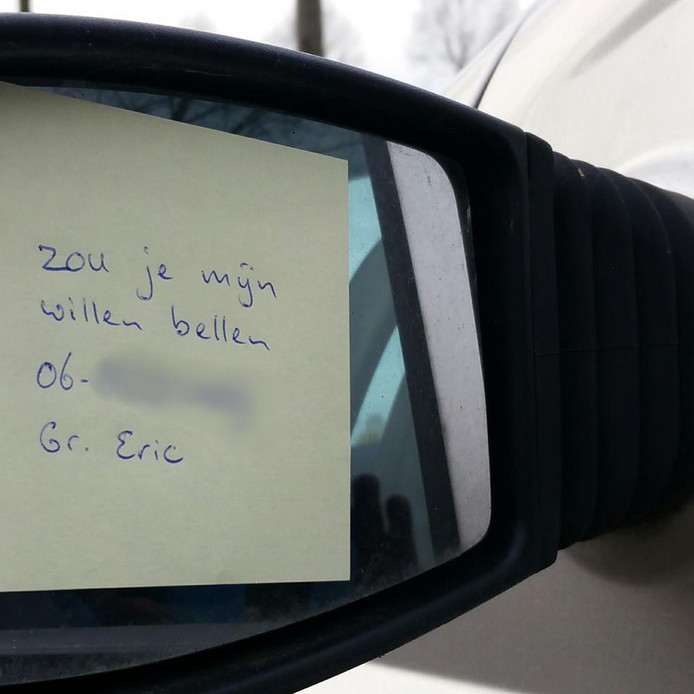 zou je mijn
willen bellen
06-
Gr. Eric